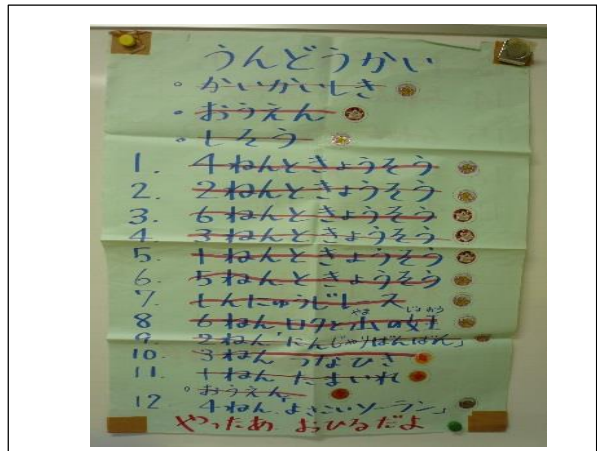 うんどうかい
◦ かいかいしき
• おうえん
• しそう
1. 4ねんときょうそう
2. 2ねんときょうそう
3. 6ねんときょうそう
4. 3ねんときょうそう
5. 1ねんときょうそう
6. 5ねんときょうそう
7. しんにゅうじレース
8 6ねん ロクと山の女王
やま じょおう
9. 2ねん「にんじゃりばんばん」
10. 3ねん つなひき
11. 1ねん たまいれ
◦おうえん
12 4ねん「よさこいソーラン」
やったあ おひるだよ